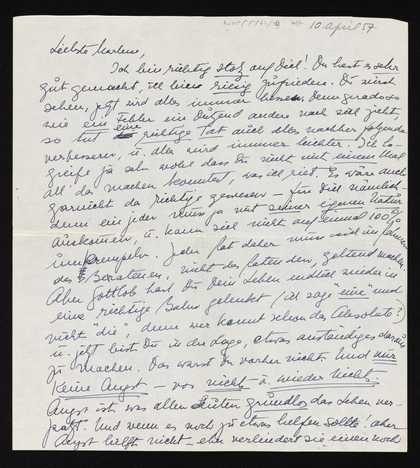 10. April 57
Liebste Marlene,
Ich bin richtig stolz auf Dich! Du hast es sehr
gut gemacht, ich bin riesig zufrieden. Du wirst
sehen, jetzt wird alles immer besser. Denn geradeso
wie ein Fehler ein Dutzend andere nach sich zieht,
so tut eine richtige Tat auch alles nachher folgende
verbessern, u. alles wird immer leichter. Ich be-
greife ja sehr wohl dass Du nicht mit einem Mal
all' das machen konntest, was ich riet. Es wäre auch
garnicht das richtige gewesen – für Dich nämlich,
denn ein jeder muss ja mit seiner eignen Natur
auskommen, u. kann sich nicht auf einmal 100%
umkrempeln. Jeder Rat daher muss sich im Rahmen
des Beratenen, nicht des Ratenden, geltend machen
Aber gottlob hast Du Dein Leben endlich wieder in
eine richtige Bahn gelenkt (ich sage "eine" und
nicht "die", denn wer kennt schon das Absolute?)
u. jetzt bist Du in der Lage, etwas anständiges daraus
zu machen. Das warst Du vorher nicht. Und nur
keine Angst – vor nichts u. wieder nichts.
Angst ist was allen Leuten grundlos das Leben ver-
patzt. Und wenn es noch zu etwas helfen sollte! aber
Angst hilft nicht – eher verhindert sie einen noch